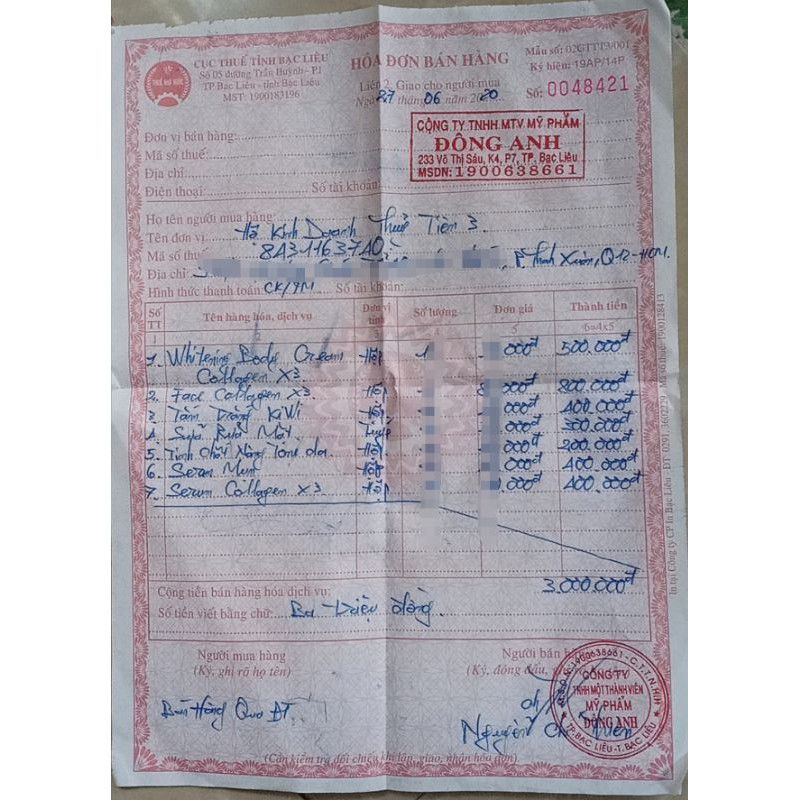 CỤC THUẾ TỈNH BẠC LIÊU
Số 05 đường Trần Huỳnh - P.1
TP Bạc Liêu - tỉnh Bạc Liêu
MST: 1900183196
THUẾ NHÀ NƯỚC
HÓA ĐƠN BÁN HÀNG
Liên 2: Giao cho người mua
Ngày 27 tháng 06 năm 2020
Mẫu số: 02GTTT3/001
Ký hiệu: 19AP/14P
Số: 0048421
CÔNG TY TNHH MTV MỸ PHẨM
ĐÔNG ANH
233 Võ Thị Sáu, K4, P7, TP. Bạc Liêu
MSDN: 1900638661
Đơn vị bán hàng:
Mã số thuế:
Địa chỉ:
Điện thoại: Số tài khoản:
Họ tên người mua hàng:
Tên đơn vị: Hộ Kinh Doanh Thuỷ Tiên 3
Mã số thuế: 8431163740
Địa chỉ: P. Thạnh Xuân, Q12-HCM.
Hình thức thanh toán: CK/TM Số tài khoản:
Số TT Tên hàng hóa, dịch vụ Đơn vị tính Số lượng Đơn giá Thành tiền
1 4 5 6=4x5
1. Whitening Body Cream Hộp 1 000đ 500.000đ
Collagen X3
2. Face Collagen X3 Hộp 000đ 800.000đ
3 Tắm Trắng KiWi Hộp 000đ 400.000đ
4. Sữa Rửa Mặt Tuýp 000đ 300.000đ
5. Tinh Chất Nâng Tone da Hộp 000đ 200.000đ
6. Serum Mụn Hộp 000đ 400.000đ
7. Serum Collagen X3 Hộp 000đ 400.000đ
Cộng tiền bán hàng hóa dịch vụ: 3.000.000đ
Số tiền viết bằng chữ: Ba triệu đồng.
Người mua hàng
(Ký, ghi rõ họ tên)
Bán Hàng Qua ĐT
Người bán hàng
(Ký, đóng dấu,
Nguyễn
1900638661 - C.T.T.N.H.H
CÔNG TY
TNHH MỘT THÀNH VIÊN
MỸ PHẨM
ĐÔNG ANH
TP. BẠC LIÊU - T. BẠC LIÊU
(Cần kiểm tra đối chiếu khi lập, giao, nhận hóa đơn)
In tại Công ty CP In Bạc Liêu - ĐT: 0291. 3602779 - Mã số thuế: 1900128413